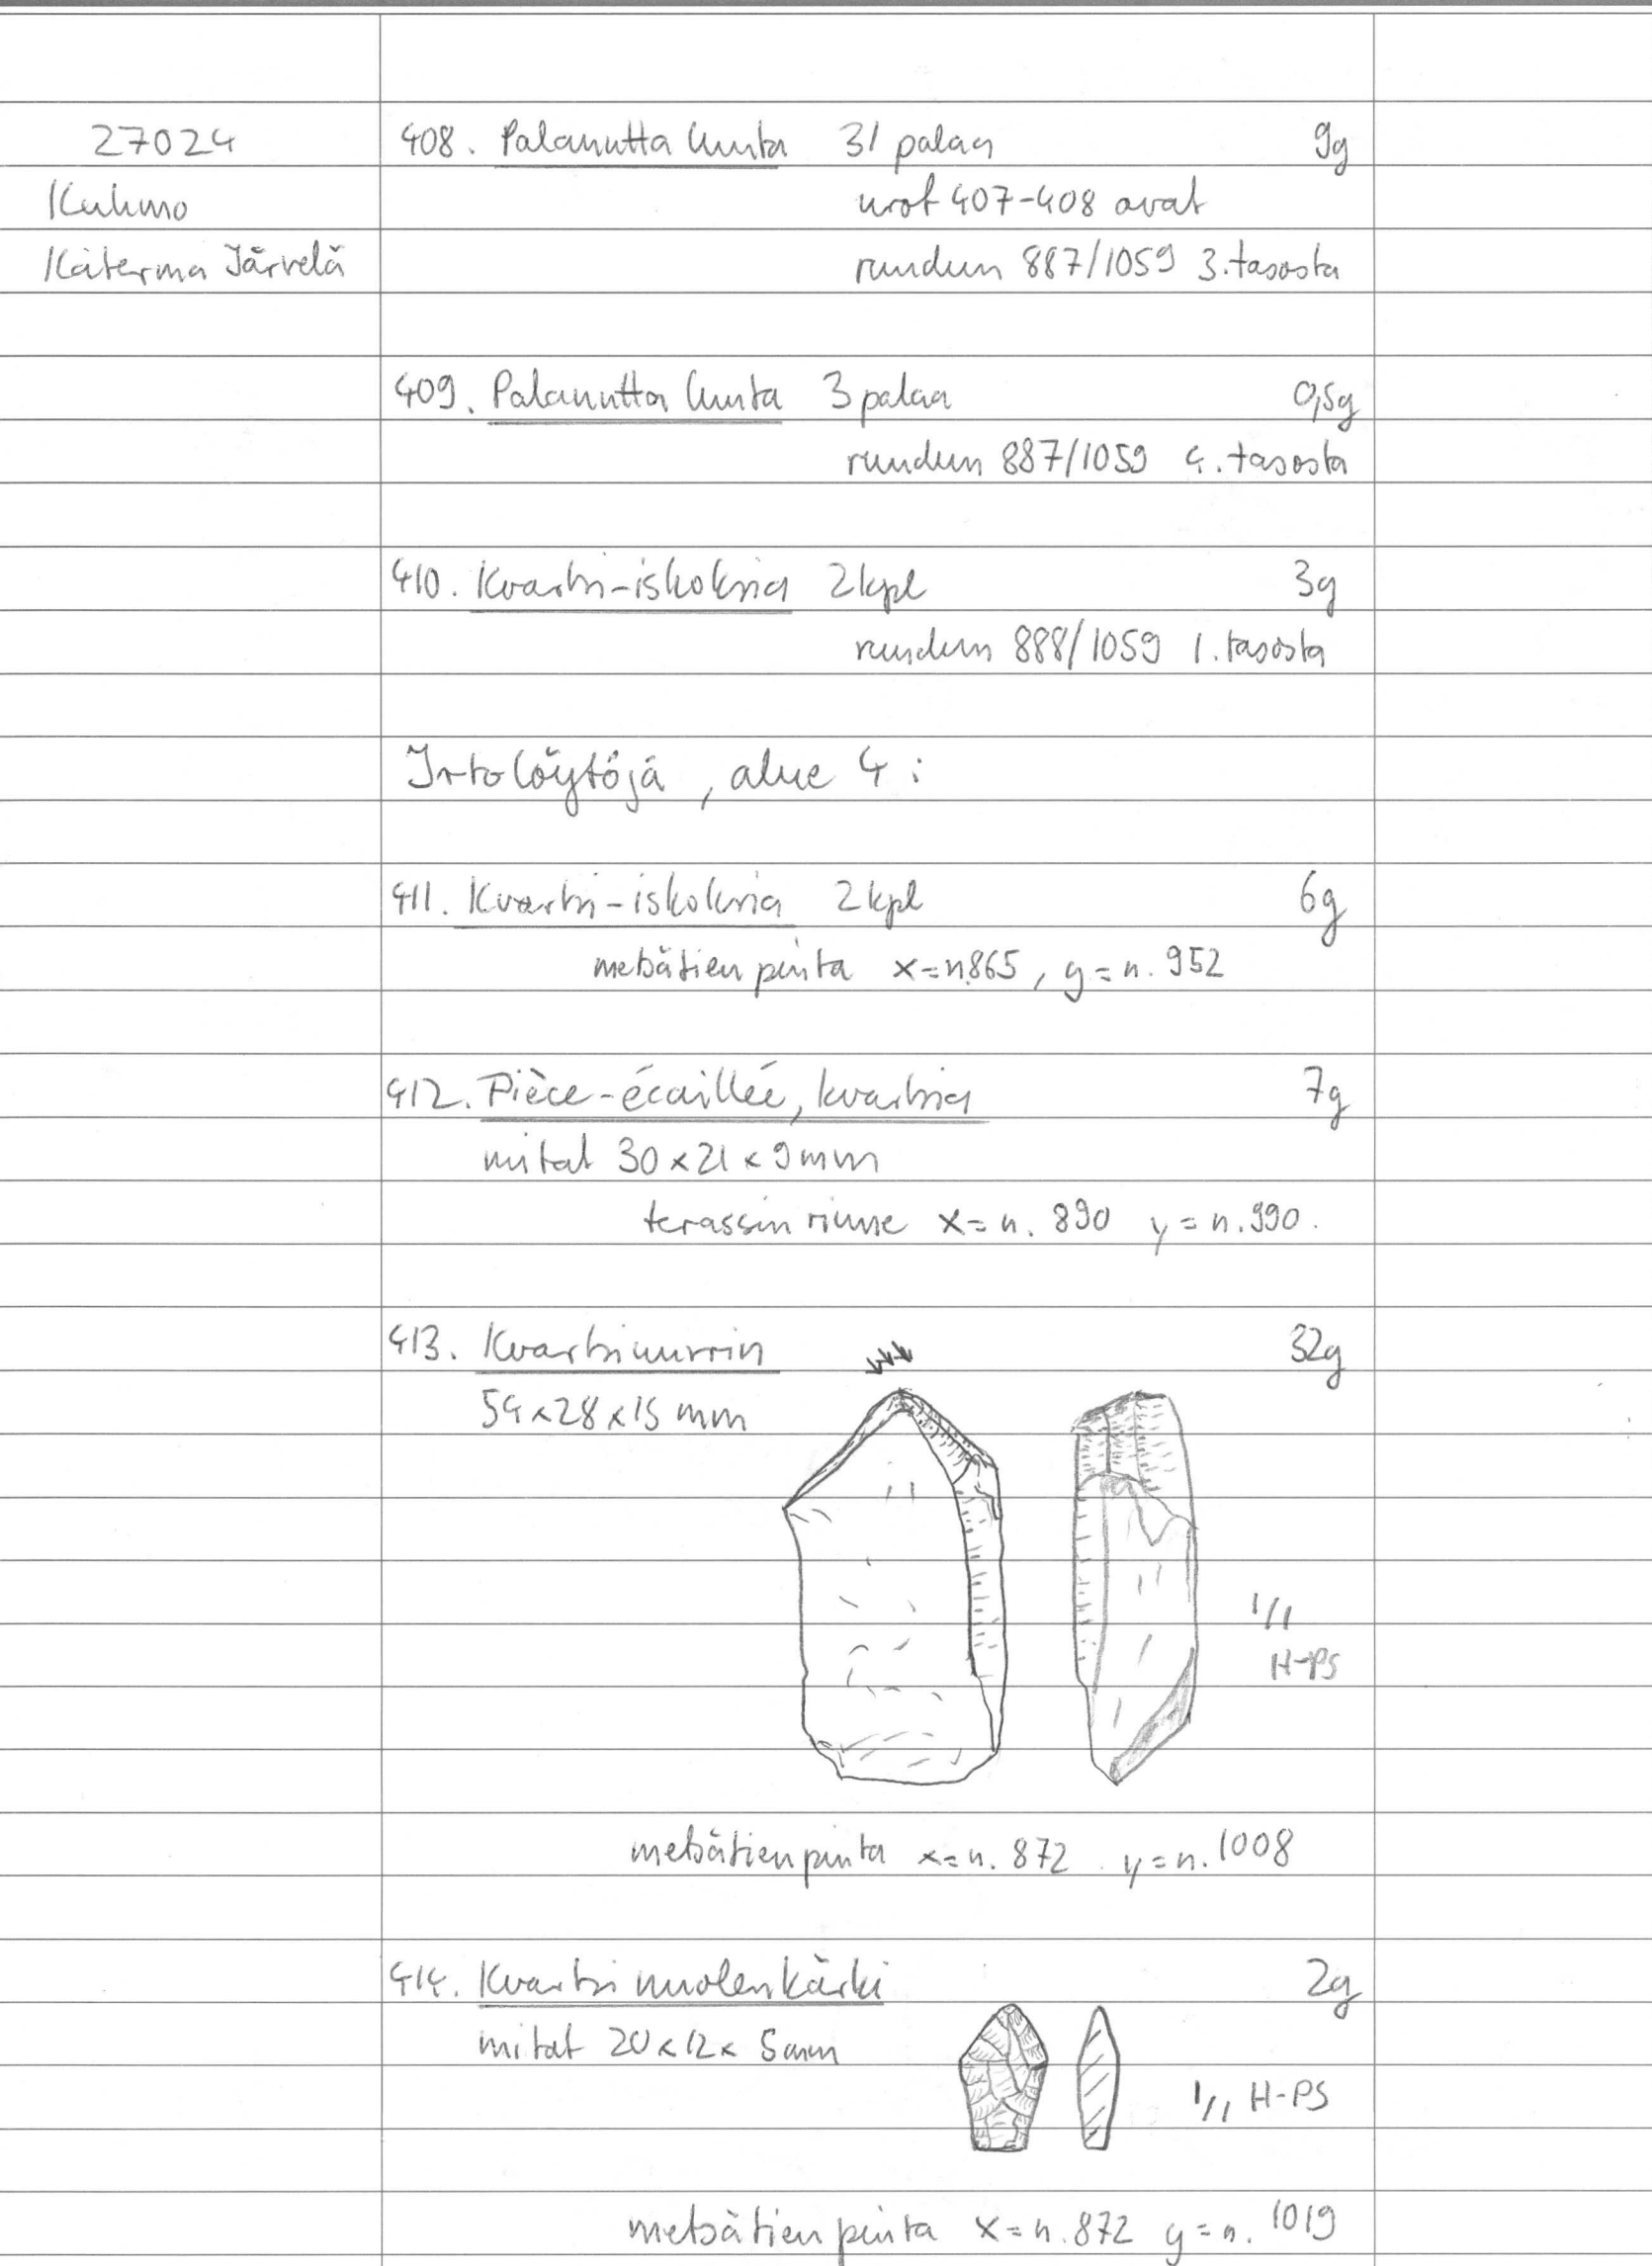 27024
Kuhmo
Katerma Järvelä
408. Palanutta luuta 31 palaa 9g
nrot 407-408 ovat
ruudun 887/1059 3. tasosta
409. Palanutta luuta 3 palaa 0,5g
ruudun 887/1059 4. tasosta
410. Kvartsi-iskoksia 2 kpl 3g
ruudun 888/1059 1. tasosta
Irtolöytöjä, alue 4:
411. Kvartsi-iskoksia 2 kpl 6g
metsätien pinta x=n.865, y=n.952
412. Pièce-écaillée, kvartsia 7g
mitat 30x21x9mm
terassin rinne x=n. 890 y=n.990.
413. Kvartsiuurrin 32g
54x28x15 mm
1/1
H-PS
metsätien pinta x=n. 872 y=n. 1008
414. Kvartsinuolenkärki 2g
mitat 20x12x5mm
1/1 H-PS
metsätien pinta x=n.872 y=n. 1019